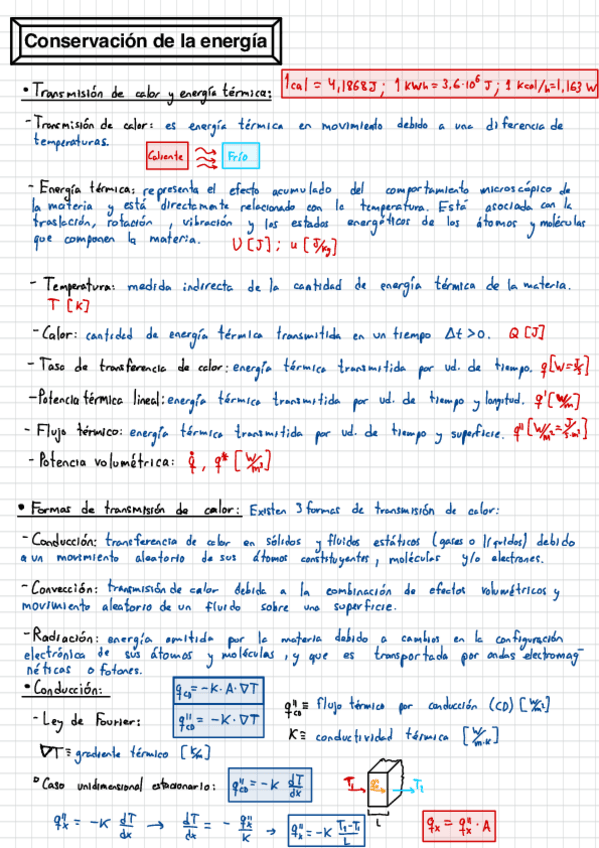 Conservación de la energía
• Transmisión de calor y energía térmica: 1 cal = 4,1868 J ; 1 kWh = 3,6·10⁶ J ; 1 kcal/h = 1,163 W
- Transmisión de calor: es energía térmica en movimiento debido a una diferencia de
temperaturas.
Caliente Frío
- Energía térmica: representa el efecto acumulado del comportamiento microscópico de
la materia y está directamente relacionado con la temperatura. Está asociada con la
traslación, rotación, vibración y los estados energéticos de los átomos y moléculas
que componen la materia. U [J] ; u [J/kg]
- Temperatura: medida indirecta de la cantidad de energía térmica de la materia.
T [K]
- Calor: cantidad de energía térmica transmitida en un tiempo Δt > 0. Q [J]
- Tasa de transferencia de calor: energía térmica transmitida por ud. de tiempo. q [W = J/s]
- Potencia térmica lineal: energía térmica transmitida por ud. de tiempo y longitud. q' [W/m]
- Flujo térmico: energía térmica transmitida por ud. de tiempo y superficie. q'' [W/m² = J/s·m²]
- Potencia volumétrica: q̇, q* [W/m³]
• Formas de transmisión de calor: Existen 3 formas de transmisión de calor:
- Conducción: transferencia de calor en sólidos y fluidos estáticos (gases o líquidos) debido
a un movimiento aleatorio de sus átomos constituyentes, moléculas y/o electrones.
- Convección: transmisión de calor debida a la combinación de efectos volumétricos y
movimiento aleatorio de un fluido sobre una superficie.
- Radiación: energía emitida por la materia debido a cambios en la configuración
electrónica de sus átomos y moléculas, y que es transportada por ondas electromag-
néticas o fotones.
• Conducción: q_CD = -K·A·∇T
- Ley de Fourier: q''_CD = -K·∇T
q''_CD ≡ flujo térmico por conducción (CD) [W/m²]
K ≡ conductividad térmica [W/m·K]
∇T ≡ gradiente térmico [K/m]
▫ Caso unidimensional estacionario: q''_CD = -K dT/dx
T₁ T₁ L
q''_x = -K dT/dx → dT/dx = - q''_x/K → q''_x = -K (T₁-T₁)/L q_x = q''_x · A